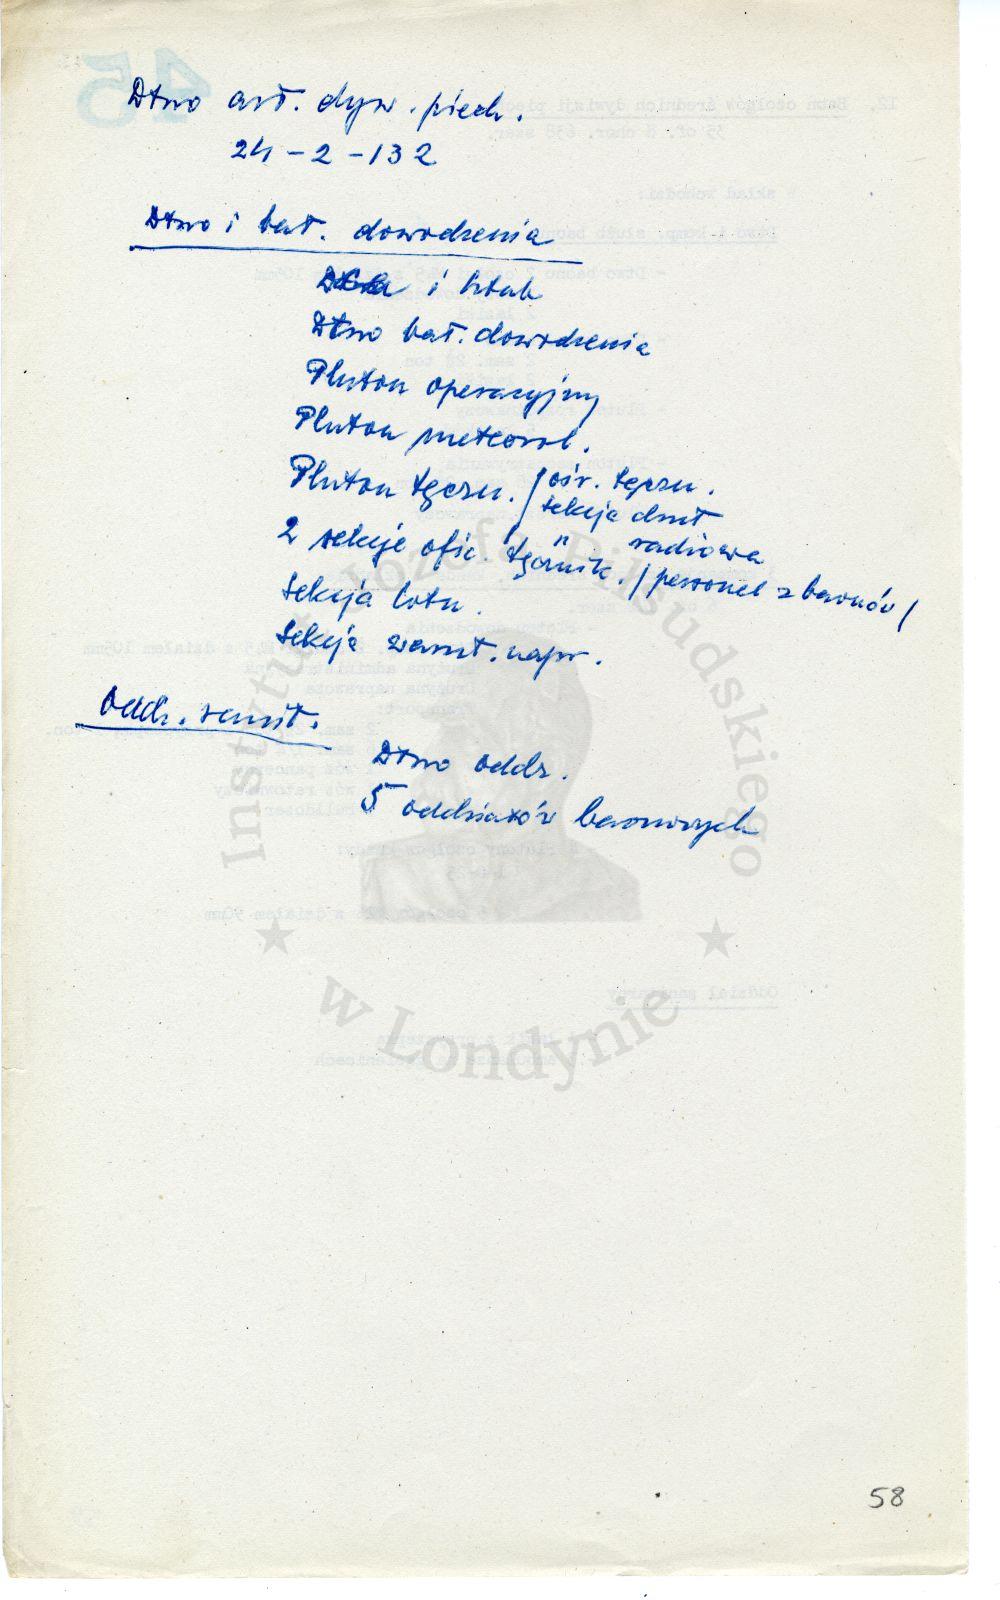 Dtwo art. dyw. piech.
24 - 2 - 132
Dtwo i bat. dowodzenia
Dca i sztab
Dtwo bat. dowodzenia
Pluton operacyjny
Pluton meteorol.
Pluton łączn. / ośr. łączn.
sekcja drut
" radiowa
2 sekcje ofic. łącznik. / personel z baonów /
Sekcja lotn.
Sekcja warszt. napr.
Oddz. sanit.
Dtwo oddz.
5 oddziałów baonowych
Instytut Józefa Piłsudskiego
w Londynie
58